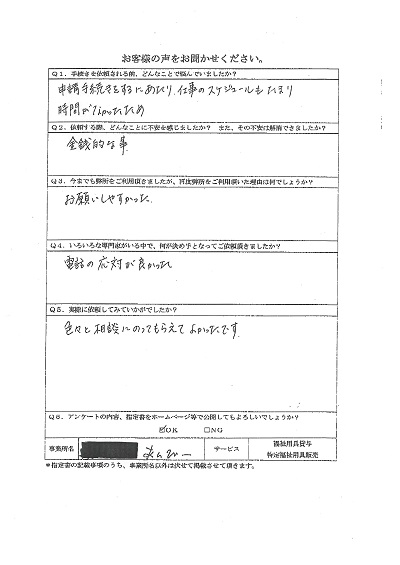 お客様の声をお聞かせください。
Q1.手続きを依頼される前、どんなことで悩んでいましたか?
申請手続きをするにあたり、仕事のスケジュールもたまり
時間がなかったため
Q2.依頼する際、どんなことに不安を感じましたか? また、その不安は解消できましたか?
金銭的な事
Q3.今までも弊所をご利用頂きましたが、再度弊所をご利用頂いた理由は何でしょうか?
お願いしやすかった
Q4.いろいろな専門家がいる中で、何が決め手となってご依頼頂きましたか?
電話の応対が良かった
Q5.実際に依頼してみていかがでしたか?
色々と相談にのってもらえてよかったです
Q6.アンケートの内容、指定書をホームページ等で公開してもよろしいでしょうか?
☑OK □NG
事業所名 サービス 福祉用具貸与
特定福祉用具販売
*指定書の記載事項のうち、事業所名以外は伏せて掲載させて頂きます。